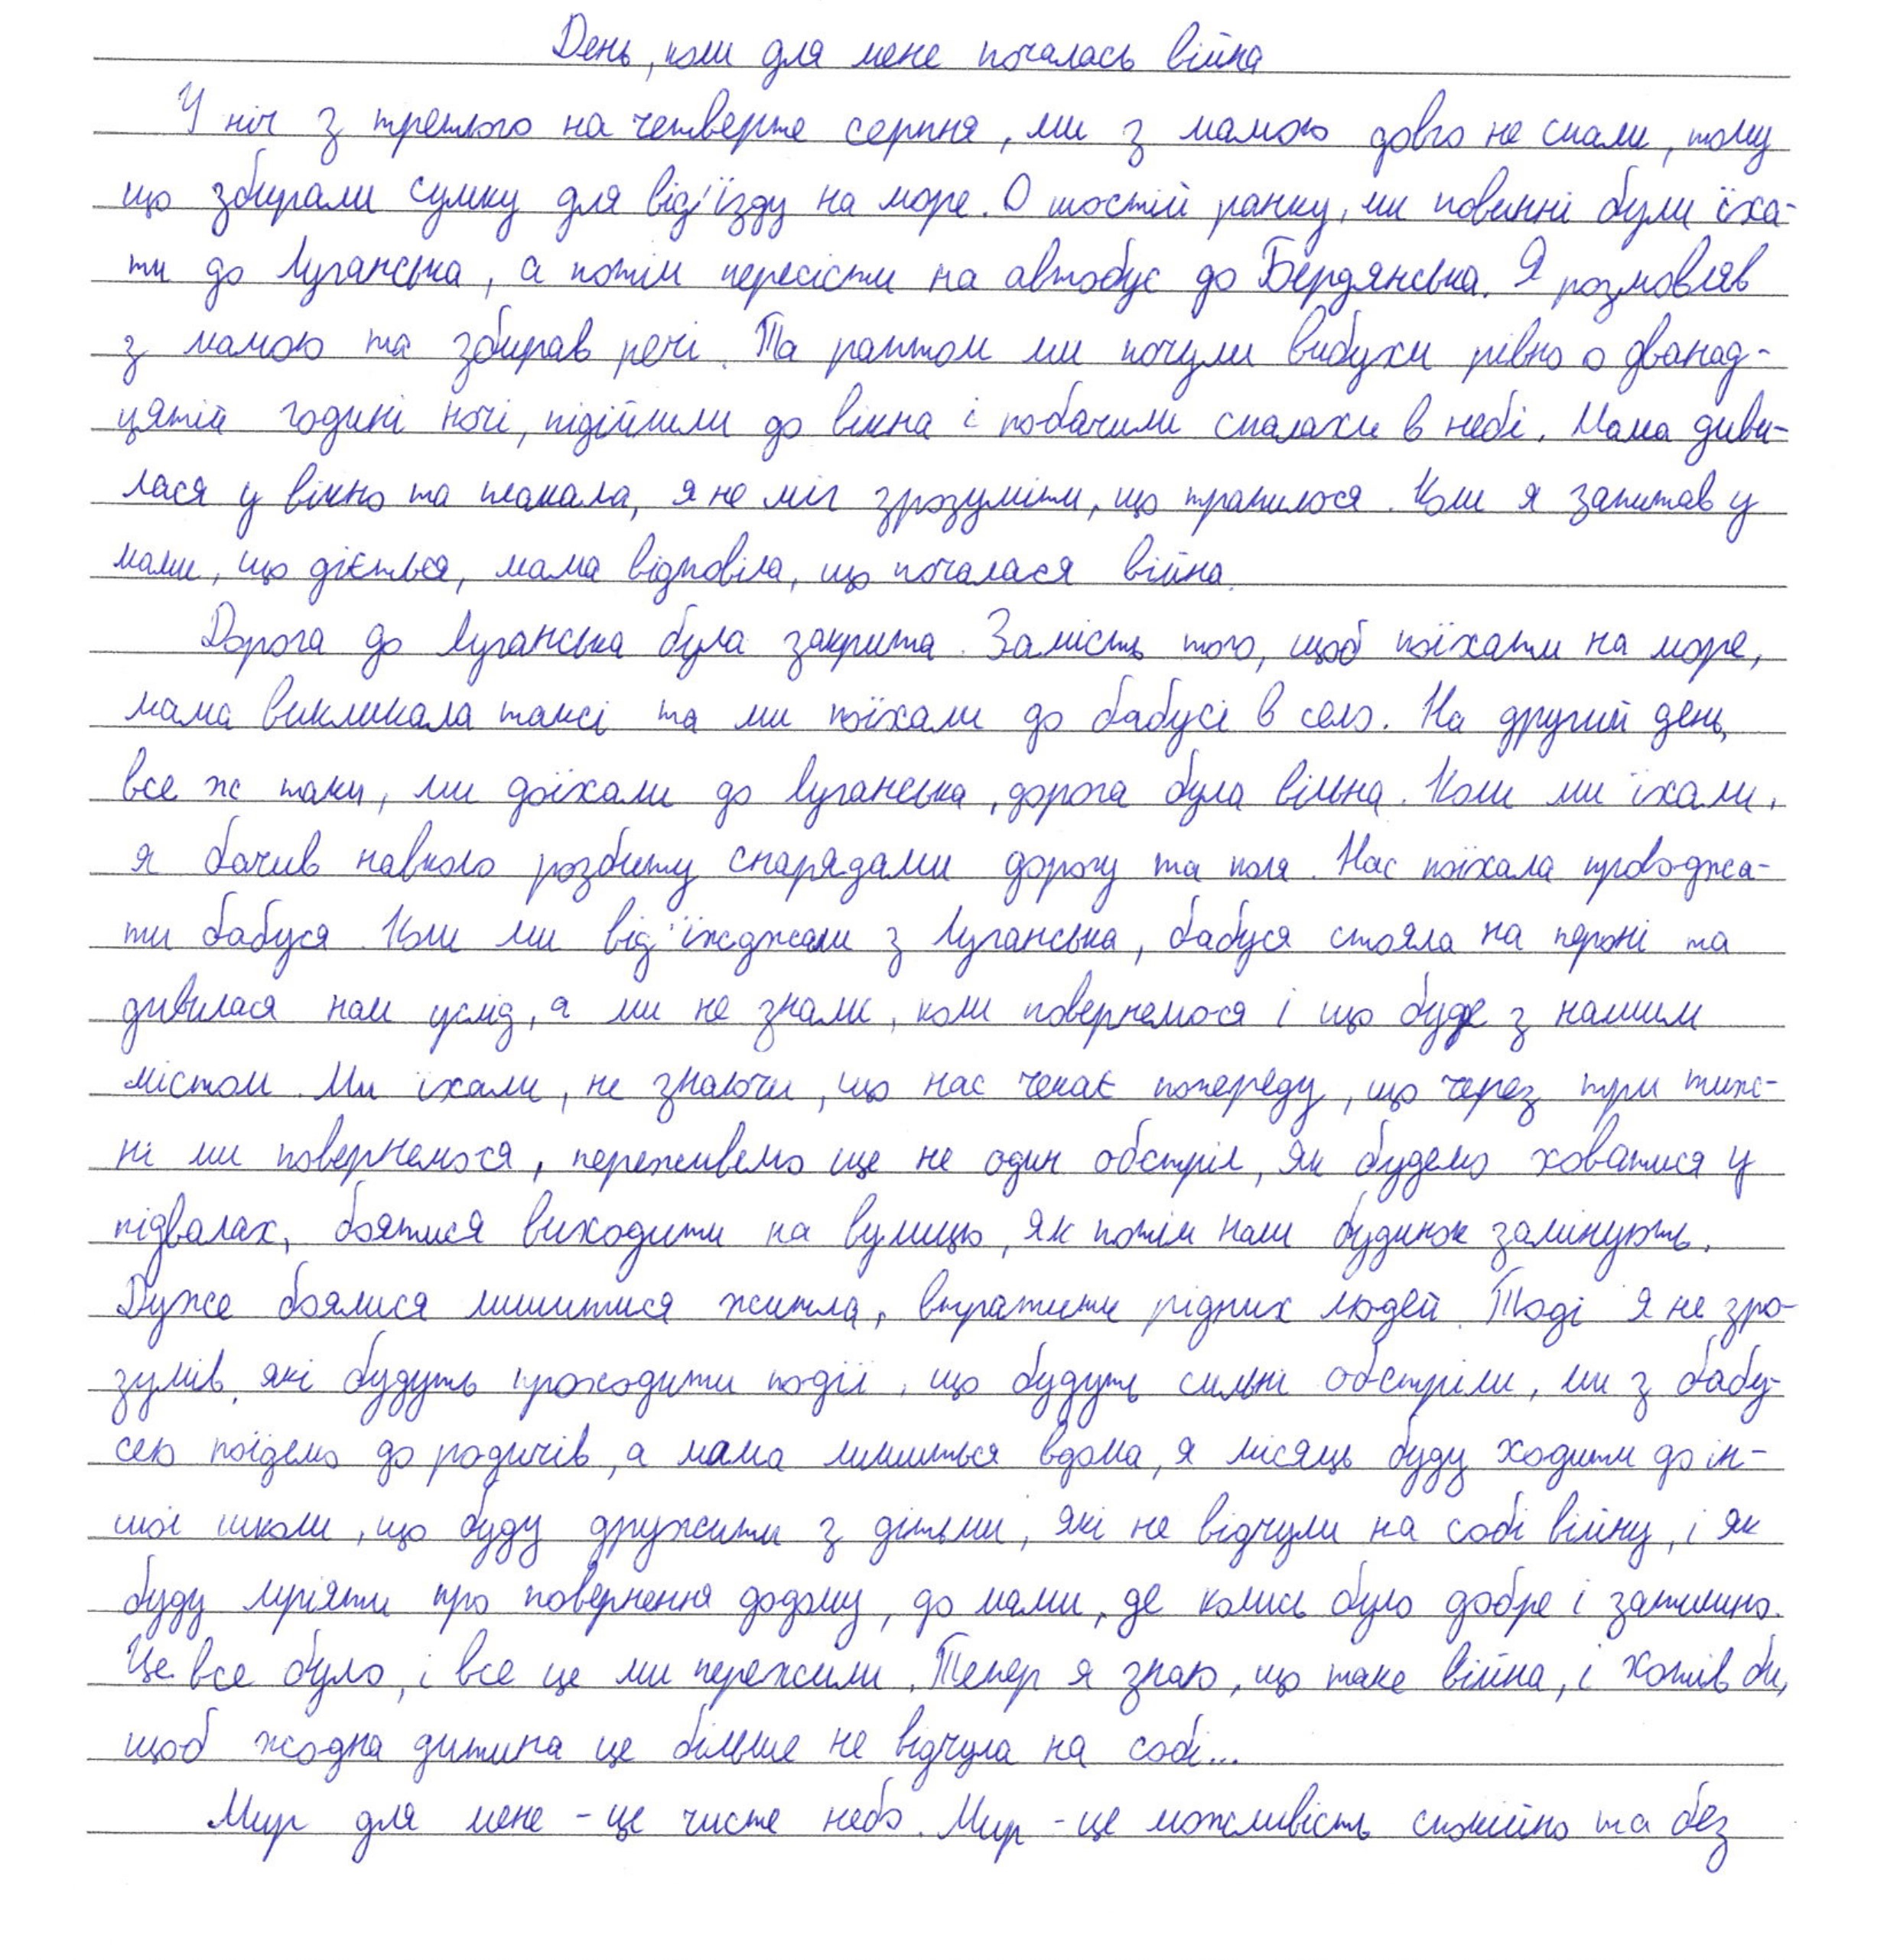 День, коли для мене почалась війна
У ніч з третього на четверте серпня, ми з мамою довго не спали, тому
що збирали сумку для від'їзду на море. О шостій ранку, ми повинні були їха-
ти до Луганська, а потім пересісти на автобус до Бердянська. Я розмовляв
з мамою та збирав речі. Та раптом ми почули вибухи рівно о дванад-
цятій годині ночі, підійшли до вікна і побачили спалахи в небі. Мама диви-
лася у вікно та плакала, я не міг зрозуміти, що трапилося. Коли я запитав у
мами, що діється, мама відповіла, що почалася війна.
Дорога до Луганська була закрита. Замість того, щоб поїхати на море,
мама викликала таксі та ми поїхали до бабусі в село. На другий день,
все ж таки, ми доїхали до Луганська, дорога була вільна. Коли ми їхали,
я бачив навколо розбиту снарядами дорогу та поля. Нас поїхала проводжа-
ти бабуся. Коли ми від'їжджали з Луганська, бабуся стояла на пероні та
дивилася нам услід, а ми не знали, коли повернемося і що буде з нашим
містом. Ми їхали, не знаючи, що нас чекає попереду, що через три тиж-
ні ми повернемося, переживемо ще не один обстріл, як будемо ховатися у
підвалах, боятися виходити на вулицю, як потім наш будинок замінують.
Дуже боялися лишитися житла, втратити рідних людей. Тоді я не зро-
зумів, які будуть проходити події, що будуть сильні обстріли, ми з бабу-
сею поїдемо до родичів, а мама лишиться вдома, я місяць буду ходити до ін-
шої школи, що буду дружити з дітьми, які не відчули на собі війну, і як
буду мріяти про повернення додому, до мами, де колись було добре і затишно.
Це все було, і все це ми пережили. Тепер я знаю, що таке війна, і хотів би,
щоб жодна дитина це більше не відчула на собі...
Мир для мене - це чисте небо. Мир - це можливість спокійно та без